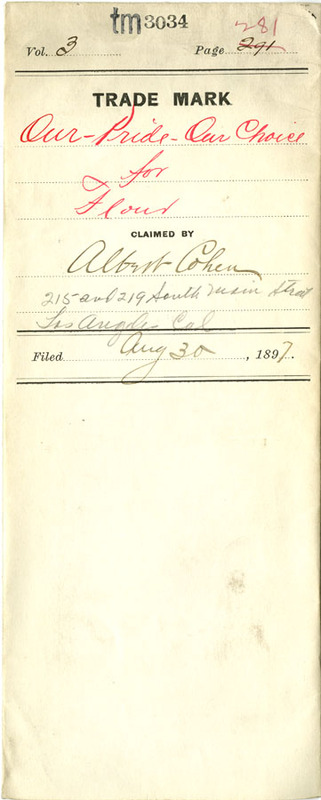 tm3034
281
Vol. 3 Page 291
TRADE MARK
Our-Pride-Our Choice
for
Flour
CLAIMED BY
Albert Cohen
215 and 219 South Main Street
Los Angeles Cal
Filed Aug 30, 1897.